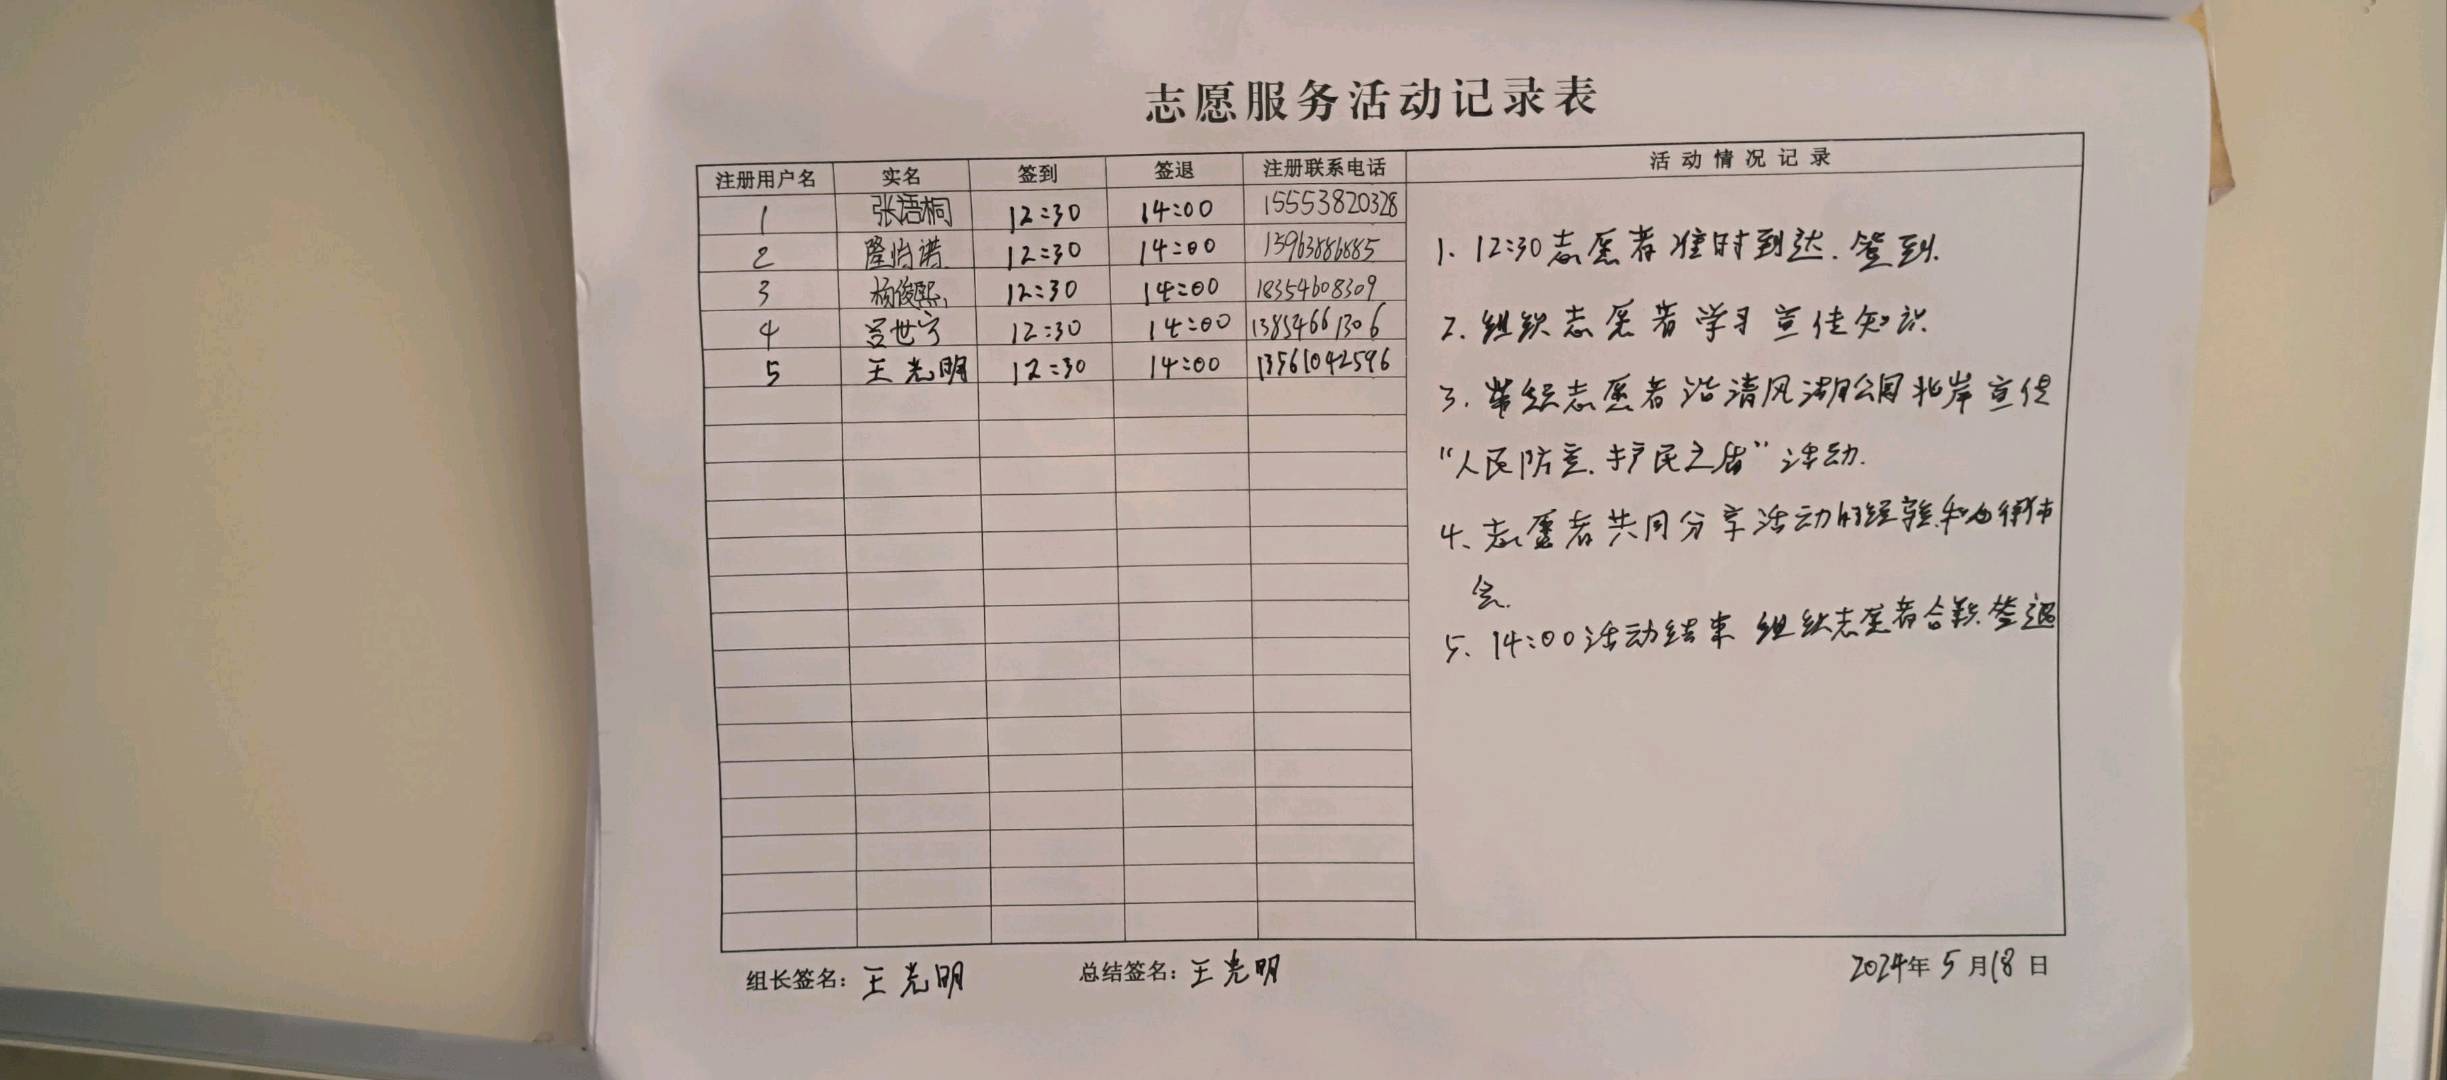 志愿服务活动记录表
注册用户名 实名 签到 签退 注册联系电话 活动情况记录
1 张语桐 12:30 14:00 15553820328
2 隆怡诺 12:30 14:00 15963886885
3 杨俊熙 12:30 14:00 18354608309
4 吕世宁 12:30 14:00 13854661306
5 王光明 12:30 14:00 13561042596
1. 12:30志愿者准时到达.签到.
2. 组织志愿者学习宣传知识.
3. 组织志愿者沿清风湖公园北岸宣传
“人民防空.护民之盾”活动.
4、志愿者共同分享活动的经验和心得体
会.
5、14:00活动结束 组织志愿者合影.签退
组长签名：王光明 总结签名：王光明 2024年5月18日